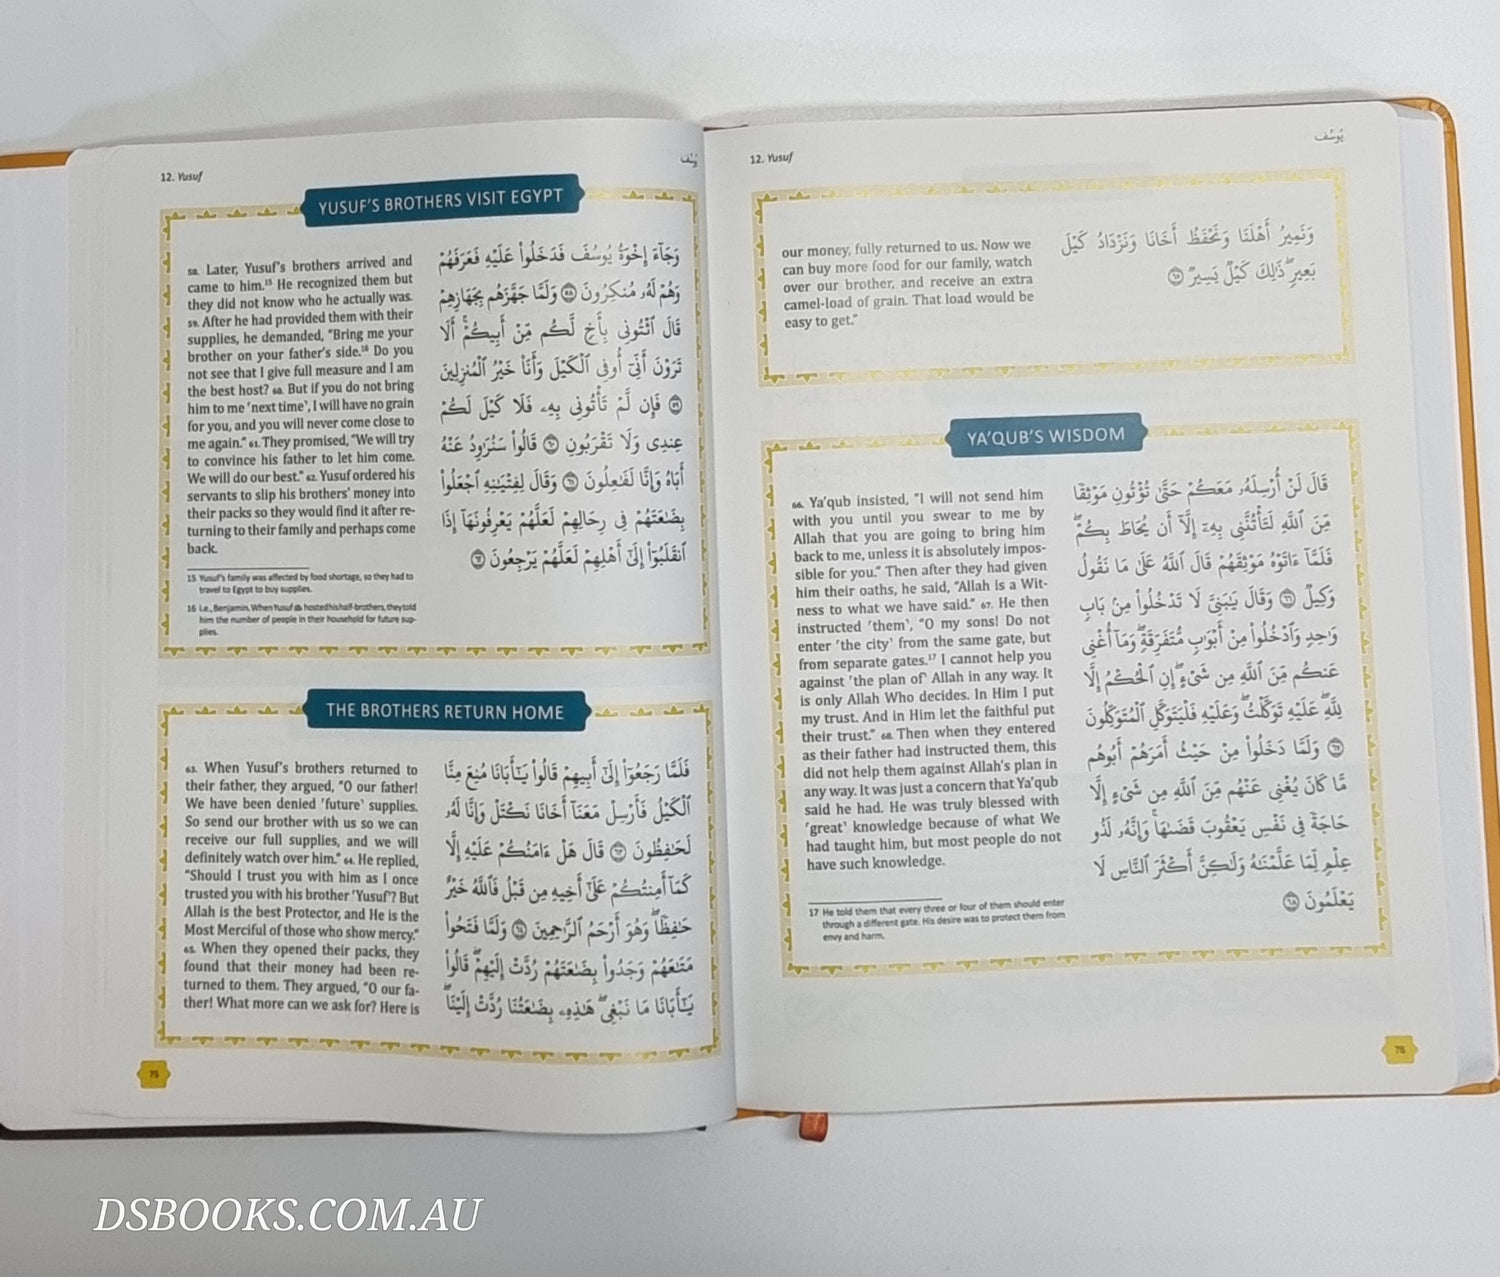 12. Yusuf
يُوسُف
YUSUF'S BROTHERS VISIT EGYPT
58. Later, Yusuf's brothers arrived and
came to him.¹⁵ He recognized them but
they did not know who he actually was.
59. After he had provided them with their
supplies, he demanded, "Bring me your
brother on your father's side.¹⁶ Do you
not see that I give full measure and I am
the best host? 60. But if you do not bring
him to me ʹnext timeʹ, I will have no grain
for you, and you will never come close to
me again." 61. They promised, "We will try
to convince his father to let him come.
We will do our best." 62. Yusuf ordered his
servants to slip his brothers' money into
their packs so they would find it after re-
turning to their family and perhaps come
back.
وَجَآءَ إِخْوَةُ يُوسُفَ فَدَخَلُوا۟ عَلَيْهِ فَعَرَفَهُمْ
وَهُمْ لَهُۥ مُنكِرُونَ ٥٨ وَلَمَّا جَهَّزَهُم بِجَهَازِهِمْ
قَالَ ٱئْتُونِى بِأَخٍ لَّكُم مِّنْ أَبِيكُمْ ۚ أَلَا
تَرَوْنَ أَنِّىٓ أُوفِى ٱلْكَيْلَ وَأَنَا۠ خَيْرُ ٱلْمُنزِلِينَ
٥٩ فَإِن لَّمْ تَأْتُونِى بِهِۦ فَلَا كَيْلَ لَكُمْ
عِندِى وَلَا تَقْرَبُونِ ٦٠ قَالُوا۟ سَنُرَٰوِدُ عَنْهُ
أَبَاهُ وَإِنَّا لَفَـٰعِلُونَ ٦١ وَقَالَ لِفِتْيَـٰنِهِ ٱجْعَلُوا۟
بِضَـٰعَتَهُمْ فِى رِحَالِهِمْ لَعَلَّهُمْ يَعْرِفُونَهَآ إِذَا
ٱنقَلَبُوٓا۟ إِلَىٰٓ أَهْلِهِمْ لَعَلَّهُمْ يَرْجِعُونَ ٦٢
15 Yusuf's family was affected by food shortage, so they had to
travel to Egypt to buy supplies.
16 I.e., Benjamin. When Yusuf hosted his half-brothers, they told
him the number of people in their household for future sup-
plies.
THE BROTHERS RETURN HOME
63. When Yusuf's brothers returned to
their father, they argued, "O our father!
We have been denied ʹfutureʹ supplies.
So send our brother with us so we can
receive our full supplies, and we will
definitely watch over him." 64. He replied,
"Should I trust you with him as I once
trusted you with his brother ʹYusufʹ? But
Allah is the best Protector, and He is the
Most Merciful of those who show mercy."
65. When they opened their packs, they
found that their money had been re-
turned to them. They argued, "O our fa-
ther! What more can we ask for? Here is
فَلَمَّا رَجَعُوٓا۟ إِلَىٰٓ أَبِيهِمْ قَالُوا۟ يَـٰٓأَبَانَا مُنِعَ مِنَّا
ٱلْكَيْلُ فَأَرْسِلْ مَعَنَآ أَخَانَا نَكْتَلْ وَإِنَّا لَهُۥ
لَحَـٰفِظُونَ ٦٣ قَالَ هَلْ ءَامَنُكُمْ عَلَيْهِ إِلَّا
كَمَآ أَمِنتُكُمْ عَلَىٰٓ أَخِيهِ مِن قَبْلُ فَٱللَّهُ خَيْرٌ
حَـٰفِظًا ۖ وَهُوَ أَرْحَمُ ٱلرَّٰحِمِينَ ٦٤ وَلَمَّا فَتَحُوا۟
مَتَـٰعَهُمْ وَجَدُوا۟ بِضَـٰعَتَهُمْ رُدَّتْ إِلَيْهِمْ ۖ قَالُوا۟
يَـٰٓأَبَانَا مَا نَبْغِى ۖ هَـٰذِهِۦ بِضَـٰعَتُنَا رُدَّتْ إِلَيْنَا ۖ
12. Yusuf
يُوسُف
our money, fully returned to us. Now we
can buy more food for our family, watch
over our brother, and receive an extra
camel-load of grain. That load would be
easy to get."
وَنَمِيرُ أَهْلَنَا وَنَحْفَظُ أَخَانَا وَنَزْدَادُ كَيْلَ
بَعِيرٍ ۖ ذَٰلِكَ كَيْلٌ يَسِيرٌ ٦٥
YA'QUB'S WISDOM
66. Ya'qub insisted, "I will not send him
with you until you swear to me by
Allah that you are going to bring him
back to me, unless it is absolutely impos-
sible for you." Then after they had given
him their oaths, he said, "Allah is a Wit-
ness to what we have said." 67. He then
instructed ʹthemʹ, "O my sons! Do not
enter ʹthe cityʹ from the same gate, but
from separate gates.¹⁷ I cannot help you
against ʹthe plan ofʹ Allah in any way. It
is only Allah Who decides. In Him I put
my trust. And in Him let the faithful put
their trust." 68. Then when they entered
as their father had instructed them, this
did not help them against Allah's plan in
any way. It was just a concern that Ya'qub
said he had. He was truly blessed with
ʹgreatʹ knowledge because of what We
had taught him, but most people do not
have such knowledge.
قَالَ لَنْ أُرْسِلَهُۥ مَعَكُمْ حَتَّىٰ تُؤْتُونِ مَوْثِقًا
مِّنَ ٱللَّهِ لَتَأْتُنَّنِى بِهِۦٓ إِلَّآ أَن يُحَاطَ بِكُمْ ۖ
فَلَمَّآ ءَاتَوْهُ مَوْثِقَهُمْ قَالَ ٱللَّهُ عَلَىٰ مَا نَقُولُ
وَكِيلٌ ٦٦ وَقَالَ يَـٰبَنِىَّ لَا تَدْخُلُوا۟ مِنۢ بَابٍ
وَٰحِدٍ وَٱدْخُلُوا۟ مِنْ أَبْوَٰبٍ مُّتَفَرِّقَةٍ ۖ وَمَآ أُغْنِى
عَنكُم مِّنَ ٱللَّهِ مِن شَىْءٍ ۖ إِنِ ٱلْحُكْمُ إِلَّا
لِلَّهِ ۖ عَلَيْهِ تَوَكَّلْتُ ۖ وَعَلَيْهِ فَلْيَتَوَكَّلِ ٱلْمُتَوَكِّلُونَ
٦٧ وَلَمَّا دَخَلُوا۟ مِنْ حَيْثُ أَمَرَهُمْ أَبُوهُم
مَّا كَانَ يُغْنِى عَنْهُم مِّنَ ٱللَّهِ مِن شَىْءٍ إِلَّا
حَاجَةً فِى نَفْسِ يَعْقُوبَ قَضَىٰهَا ۚ وَإِنَّهُۥ لَذُو
عِلْمٍ لِّمَا عَلَّمْنَـٰهُ وَلَـٰكِنَّ أَكْثَرَ ٱلنَّاسِ لَا
يَعْلَمُونَ ٦٨
17 He told them that every three or four of them should enter
through a different gate. His desire was to protect them from
envy and harm.
DSBOOKS.COM.AU